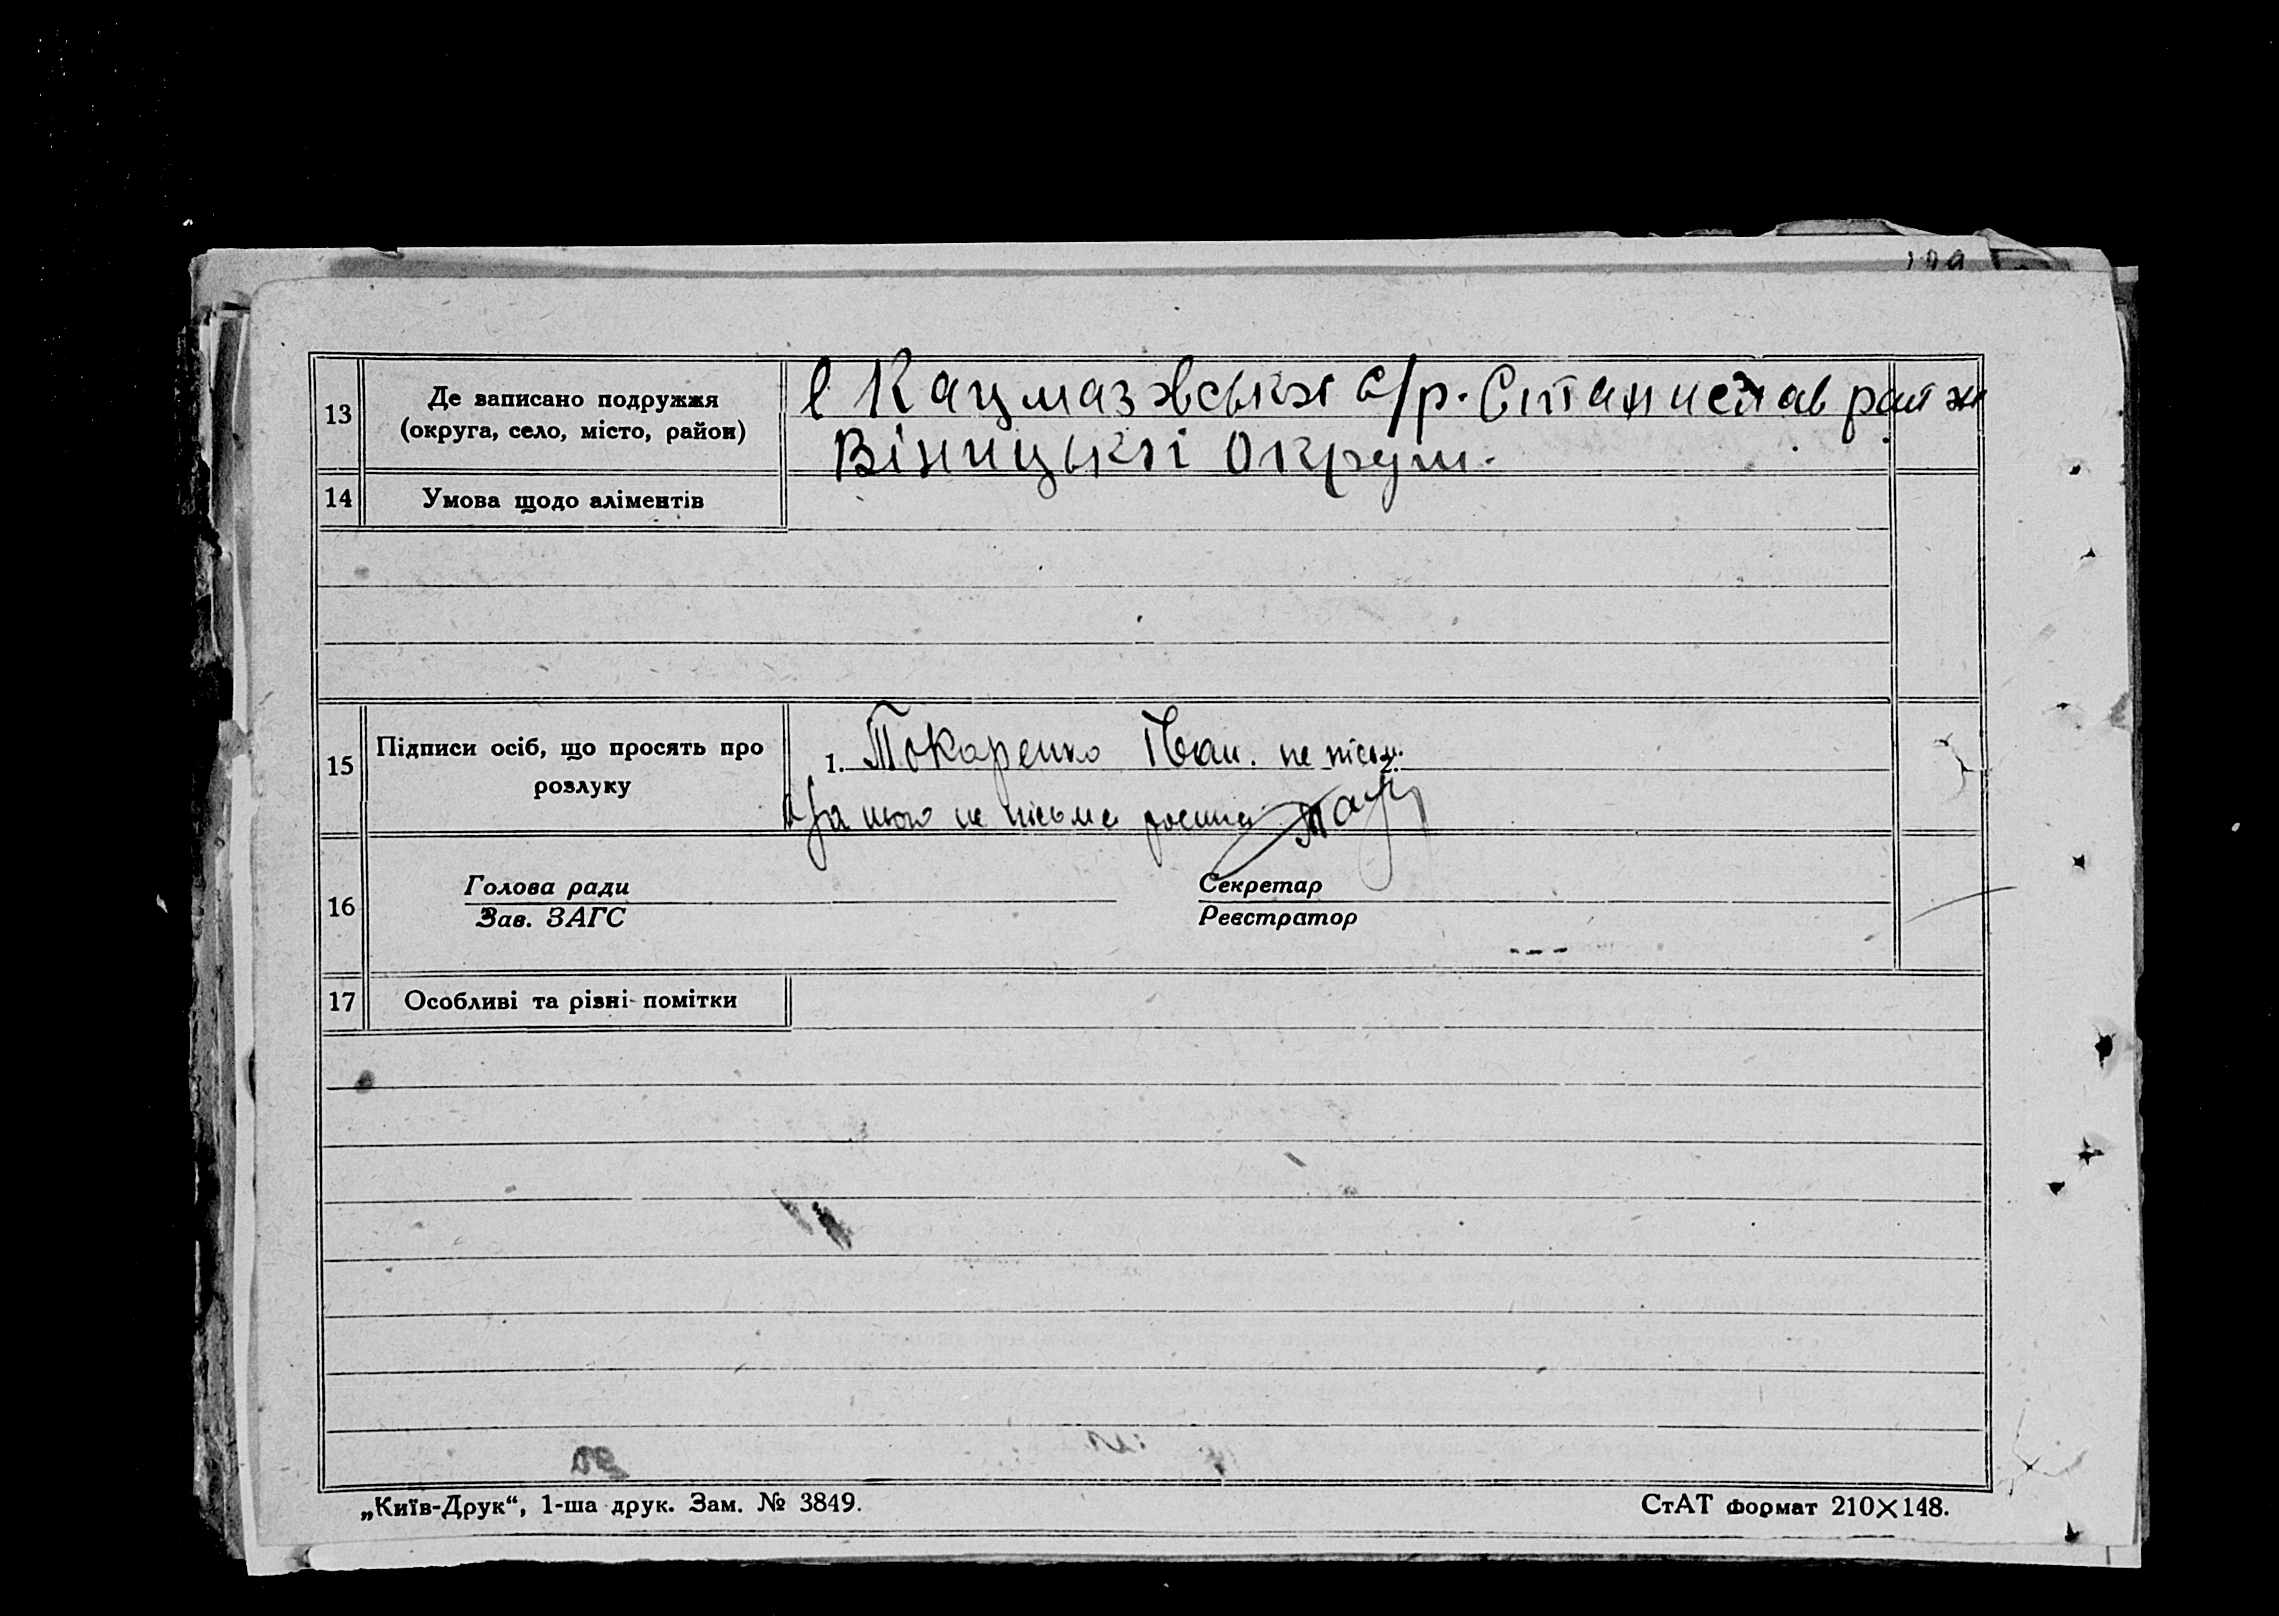 13 Де записано подружжя
(округа, село, місто, район)
в Кацмазовській с/р. Станислав район
Вінницькі округи.
14 Умова щодо аліментів
15 Підписи осіб, що просять про
розлуку
1. Токаренко Іван. не пісьм.
За него не пісьме
Голова ради Секретар
16
Зав. ЗАГС Реєстратор
17 Особливі та різні помітки
„Київ-Друк“, 1-ша друк. Зам. № 3849. СтАТ формат 210×148.